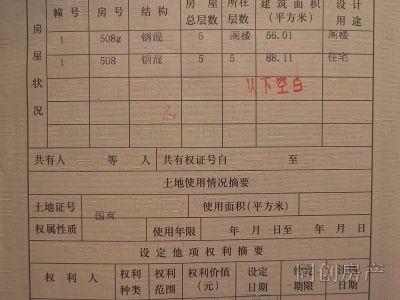 幢号 房号 结构 房屋总层数 所在层数 建筑面积(平方米) 设计用途
房屋状况
1 508g 钢混 5 阁楼 56.01 阁楼
1 508 钢混 5 5 88.11 住宅
以下空白
共有人 等 人 共有权证号自 至
土地使用情况摘要
土地证号 国有 使用面积(平方米)
权属性质 使用年限 年 月 日至 年 月 日
设定他项权利摘要
权利人 权利种类 权利范围 权利价值(元) 设定日期 约定期限 注销日期
创房产